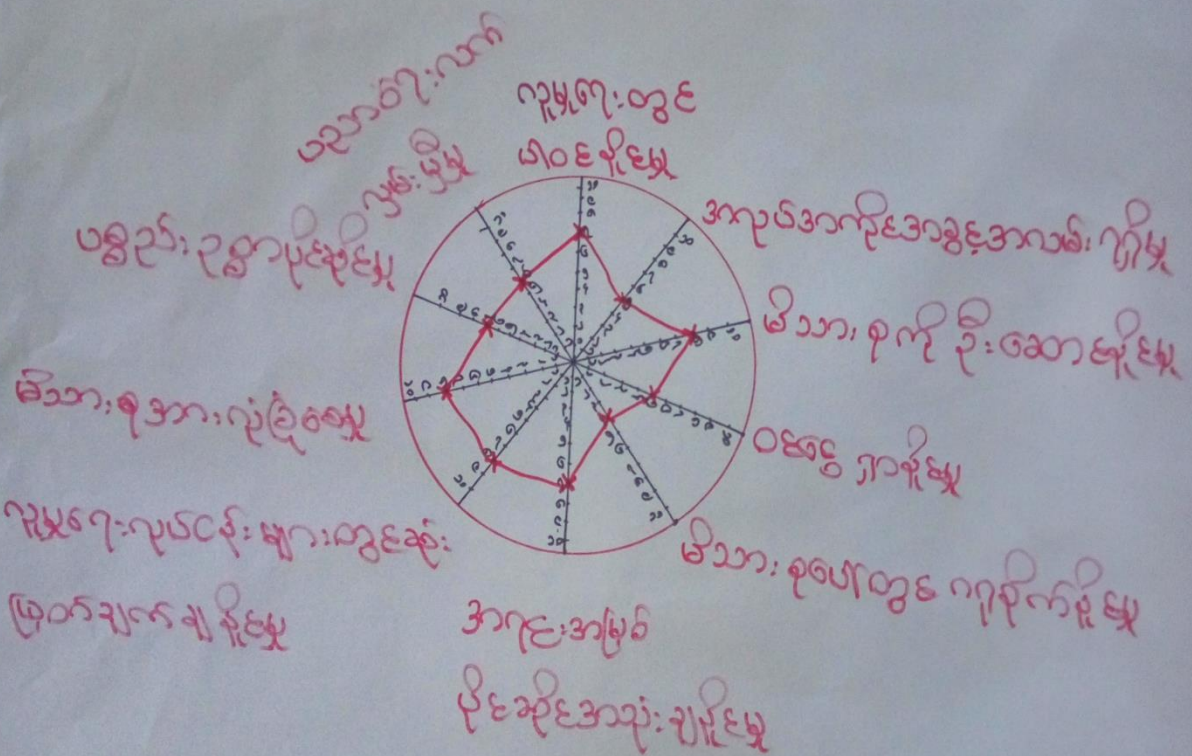 ပညာရေးလက်
လှမ်းမှီမှု
လူမှုရေးတွင်
ပါဝင်နိုင်မှု
အလုပ်အကိုင်အခွင့်အလမ်းရရှိမှု
မိသားစုကို ဦးဆောင်နိုင်မှု
ဝင်ငွေ ရှာနိုင်မှု
မိသားစုပေါ်တွင် ဂရုစိုက်နိုင်မှု
အရင်းအမြစ်
ပိုင်ဆိုင်အသုံးချနိုင်မှု
လူမှုရေးလုပ်ငန်းများတွင်ဆုံး
ဖြတ်ချက်ချနိုင်မှု
မိသားစုအားလုံခြုံစေမှု
ပစ္စည်းဥစ္စာပိုင်ဆိုင်မှု